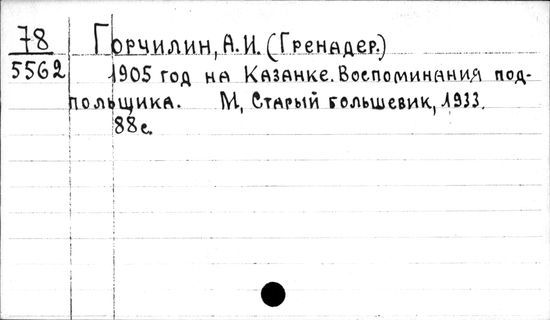 78 Горчилин, А.И. (Гренадер.)
5562 1905 год на Казанке. Воспоминания под-
польщика. М, Старый большевик, 1933.
88с.